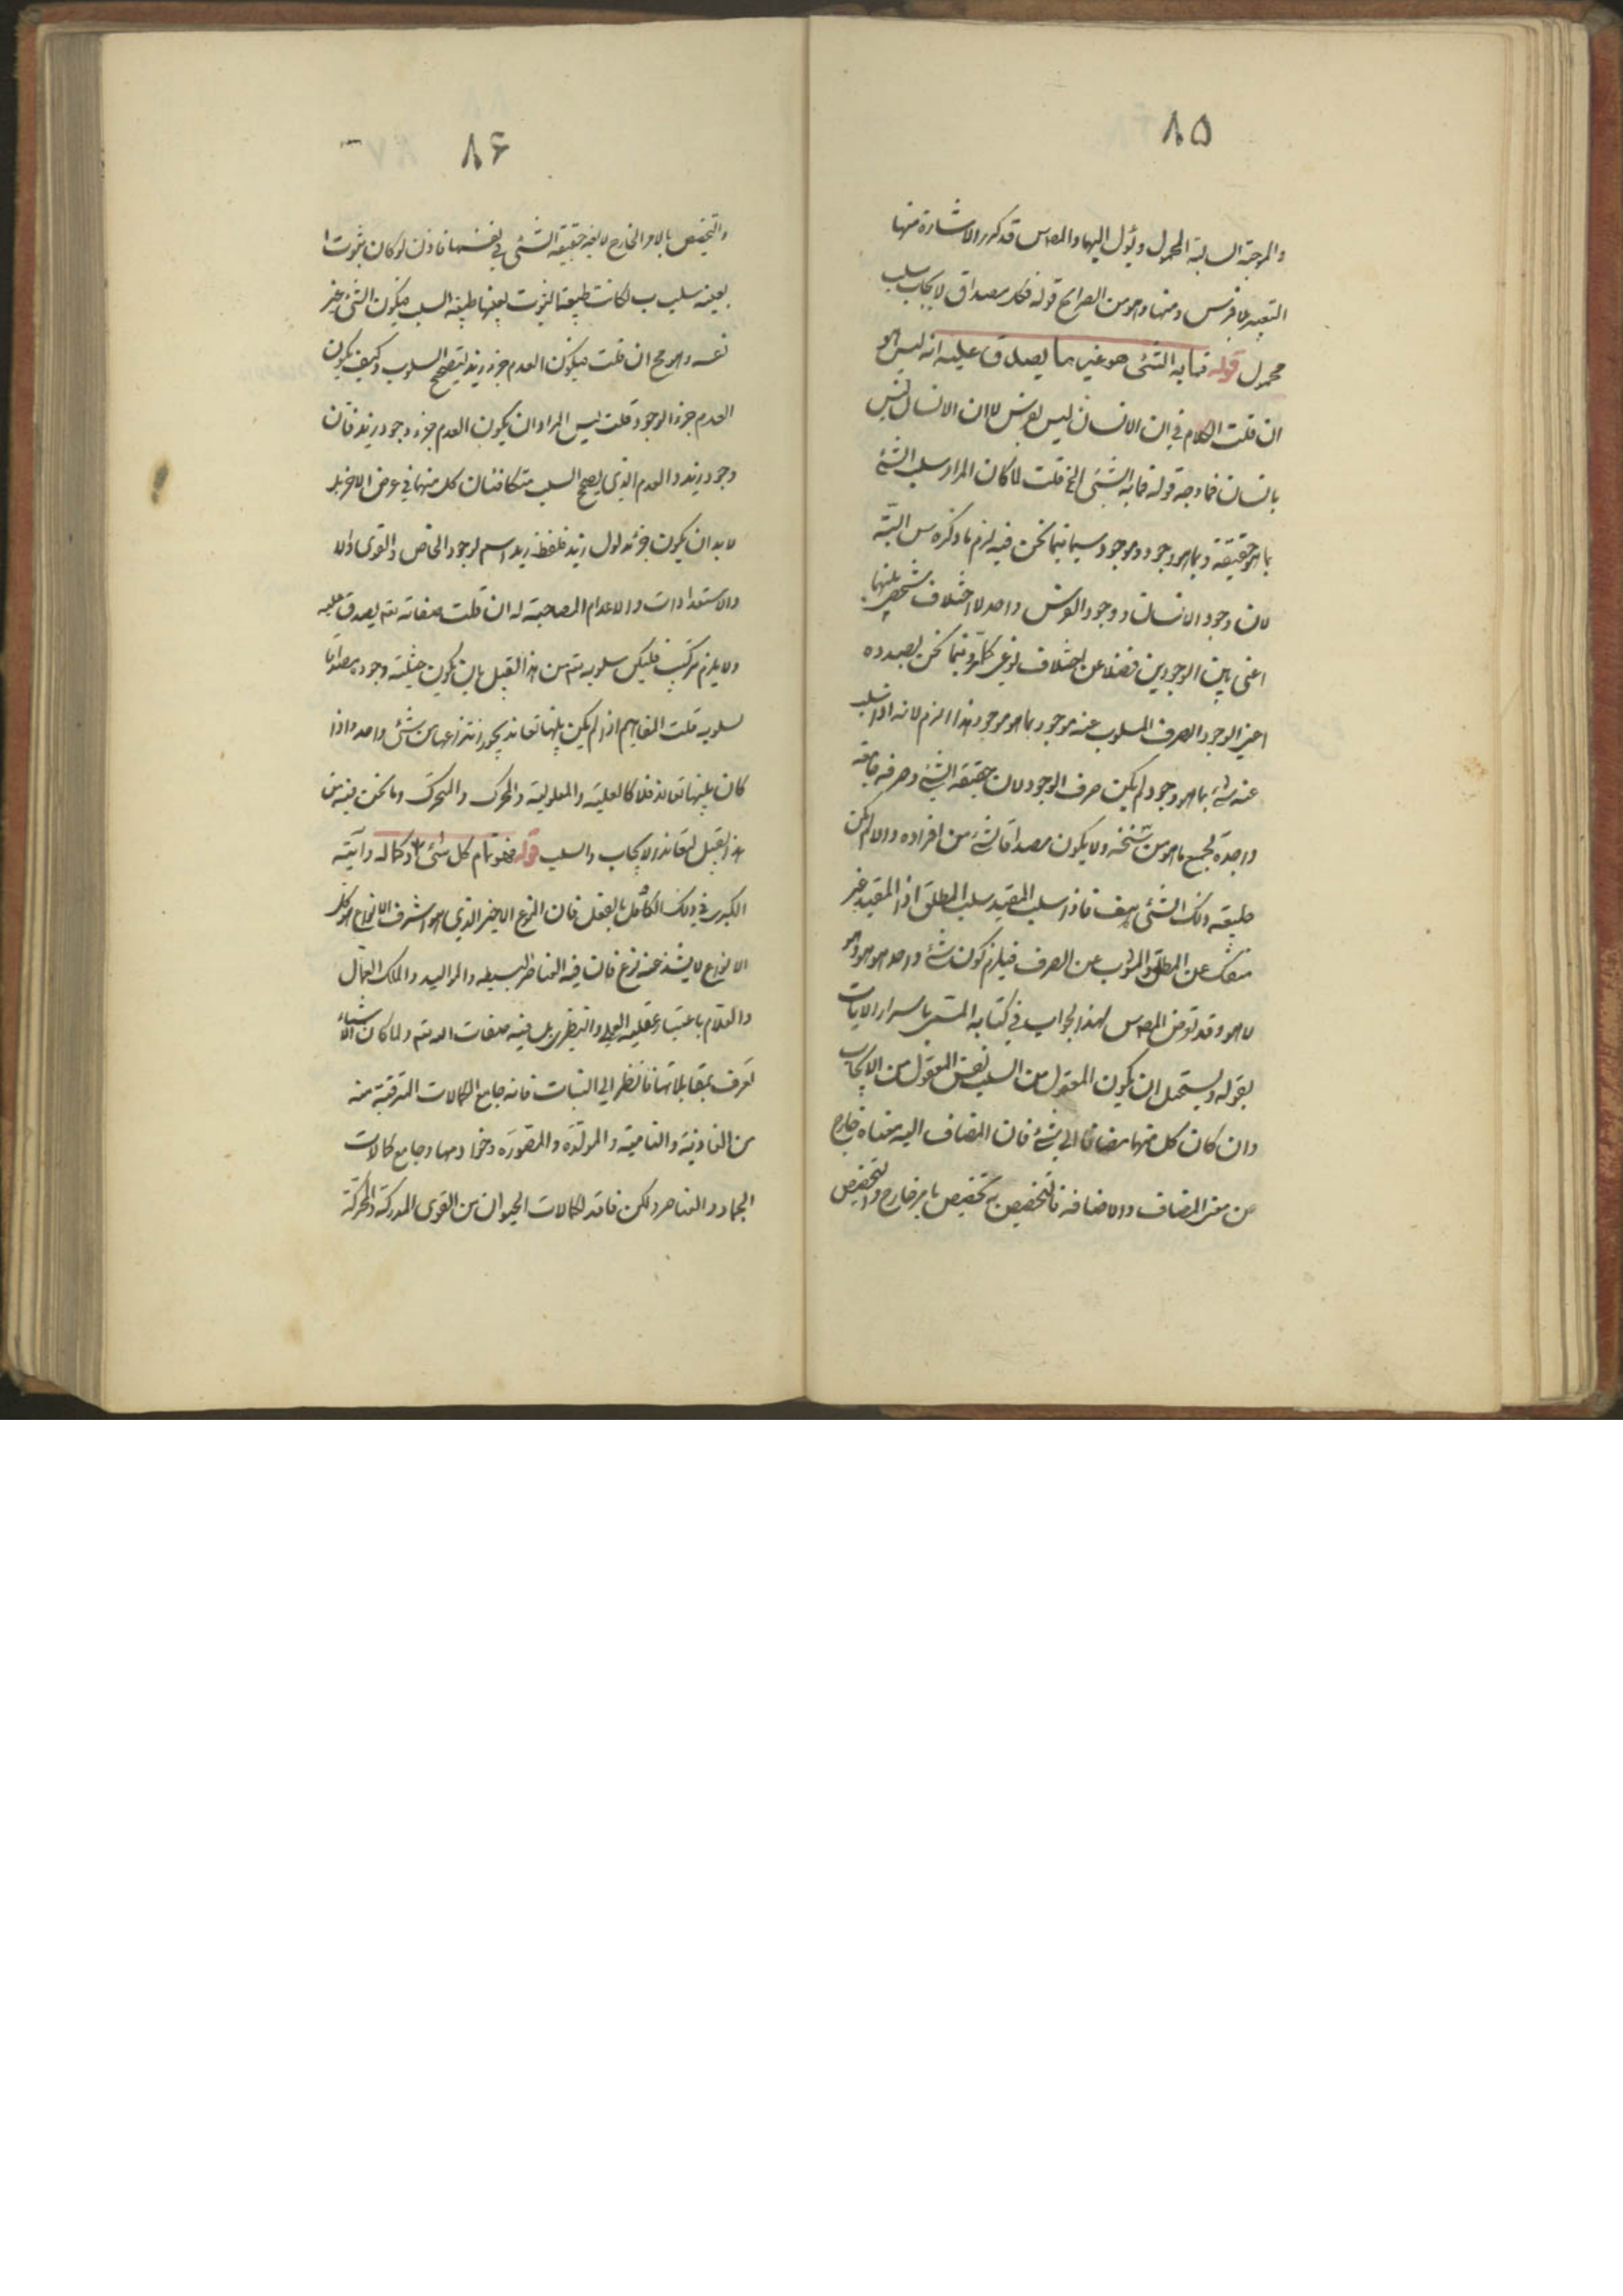 ٨۵
والموجبة السالبة المحمول ويؤل اليها والمصد‌س قد كرر الاشارة منها
التعبير بلا فرس ومنها وهو من الصرايح قوله فكل مصداق لايجاب سلب
محمول قوله فما به الشئ هو غير ما يصدق عليه انه ليس هو
ان قلت الكلام في ان الانسان ليس بفرس لا ان الانسان ليس
بانسان فما وجه قوله فما به الشئ الخ قلت لما كان المراد سلب الشئ
بما هو حقيقة وبما هو وجود وموجود سيما فيما نحن فيه لزم ما ذكره س البتة
لان وجود الانسان ووجود الفرس واحد لا اختلاف شخصي بينهما
اعنى بين الوجودين فضلا عن اختلاف نوعى كلّ وفيما نحن بصدده
اعنى الوجود الصرف المسلوب عنه موجود بما هو موجود هذا الزم لانه اذا سلب
عنه شئ بما هو وجود لم يكن صرف الوجود لان حقيقة الشئ وصرفه جامعة
واجدة لجميع ما هو من سنخه ولا يكون مصداقا لشئ من افراده والا لم يكن
حقيقة ذلك الشئ هف فاذا سلب المقيد سلب المطلق اذ المقيد غير
منفك عن المطلق والمشوب عن الصرف فيلزم كون شئ واحد هو هو وهو
لا هو وقد تعرض المصد‌س لهذا الجواب في كتابه المسمى باسرار الايات
بقوله ويستحيل ان يكون المعقول من السلب نفس المعقول من الايجاب
وان كان كل منهما مضافا الى شئ فان المضاف اليه معناه خارج
عن معنى المضاف والاضافة فالتخصيص به تخصيص بامر خارج والتخصيص
٨۶
والتخصيص بالامر الخارج لا يغير حقيقة الشئ في نفسها فاذن لو كان ثبوت ا
بعينه سلب ب لكانت طبيعة الثبوت بعينها طبيعة السلب فيكون الشئ غير
نفسه وهو مح ان قلت فيكون العدم جزء زيد ليتصحح السلوب وكيف يكون
العدم جزء الوجود قلت ليس المراد ان يكون العدم جزء وجود زيد فان
وجود زيد والعدم الذى يصحح السلب متكافئان كل منهما في عرض الاخر بل
لا بد ان يكون جزء مدلول زيد فلفظ زيد اسم لوجود الخاص والقوى اولا
والاستعدادات والاعدام المصاحبة له ان قلت صفاته تعم يصدق عليه
ولا يلزم تركيب فليكن سلوبه تعم من هذا القبيل بان يكون حيثية وجوده مصداقا
لسلوبه قلت المفاهيم اذا لم يكن بينها تعاند يجوز انتزاعها من شئ واحد واذا
كان بينها تعاند فلا كالعلية والمعلولية والمحرك والمتحرك وما نحن فيه من
هذا القبيل لتعاند الايجاب والسلب قوله فهو تمام كل شئ وكماله وآيته
الكبرى في ذلك الكامل بالفعل فان النوع الاخير الذى هو اشرف الانواع هو كل
الانواع لا يشذ عنه نوع فان فيه العناصر البسيطة والمواليد والملك العمال
والعلام باعتبار عقليه العملى والنظرى بل فيه صفات الله تعم ولما كان الاشياء
تعرف بمقابلاتها فانظر الى النبات فانه جامع الكمالات المترقبة منه
من الغاذية والنامية والمولدة والمصورة وخوادمها وجامع كمالات
الجماد والعناصر ولكن فاقد لكمالات الحيوان من القوى المدركة والمحركة